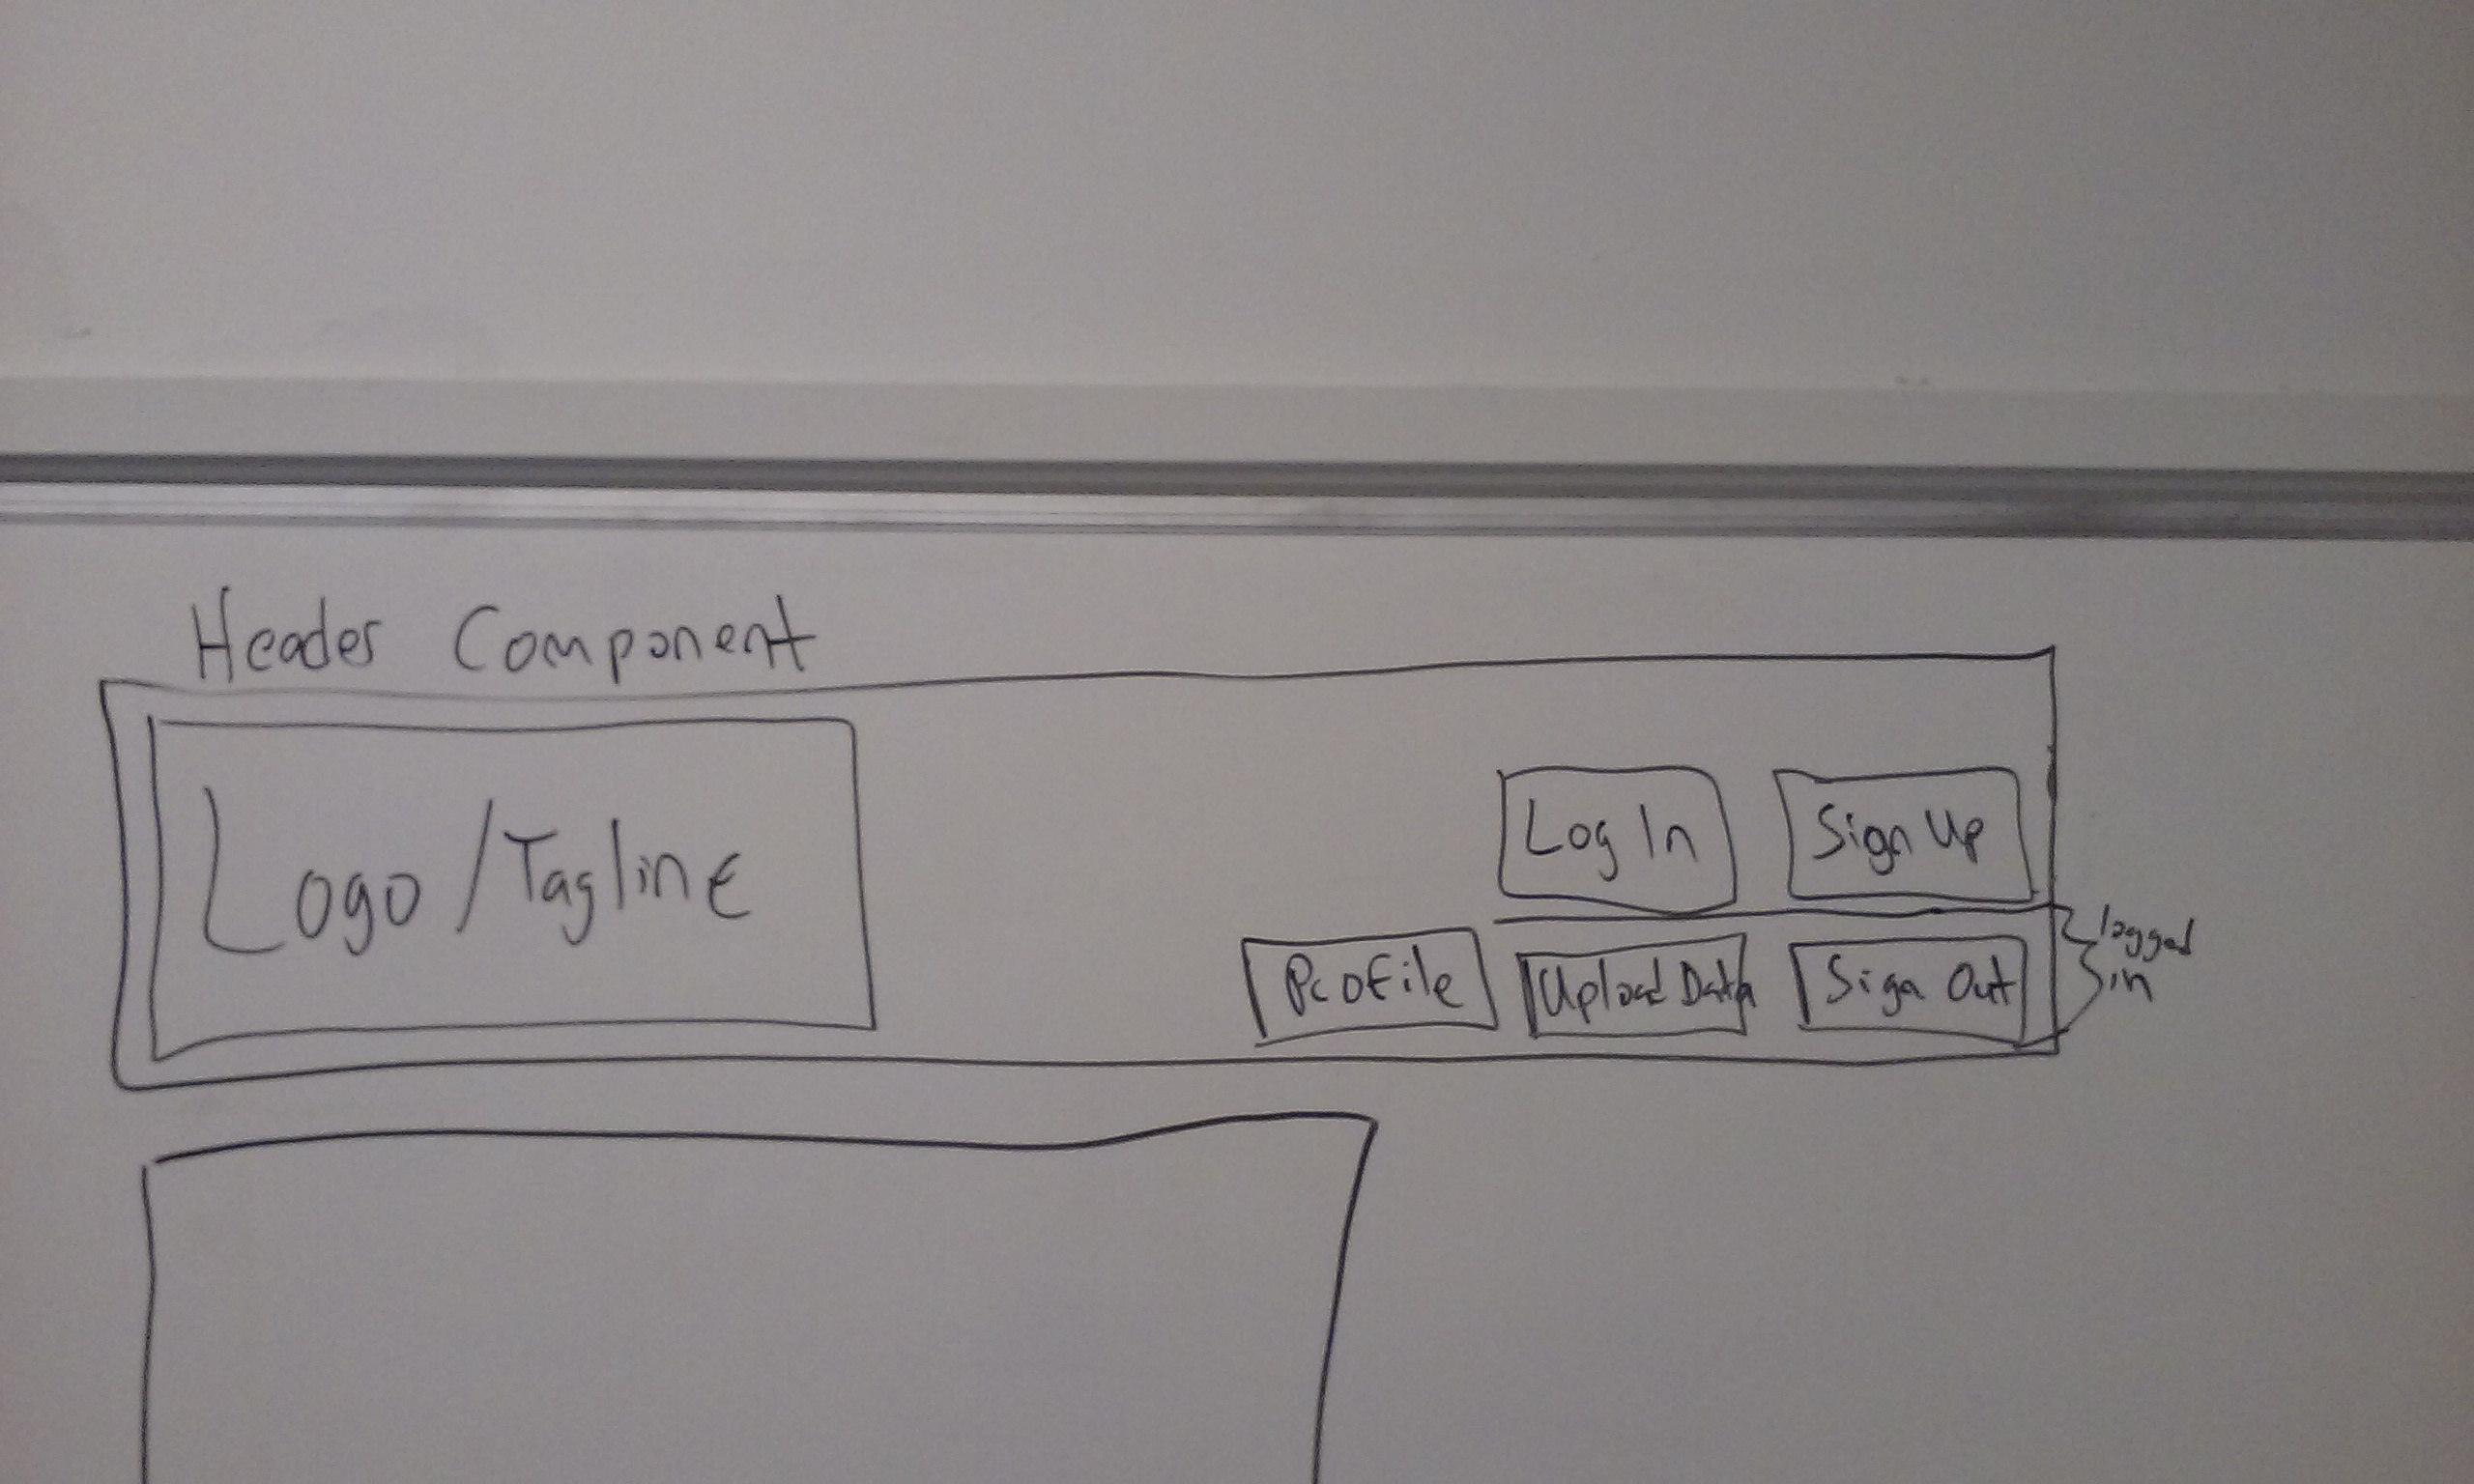 Header Component
Logo/Tagline
Log In
Sign Up
Profile
Upload Data
Sign Out
logged
in